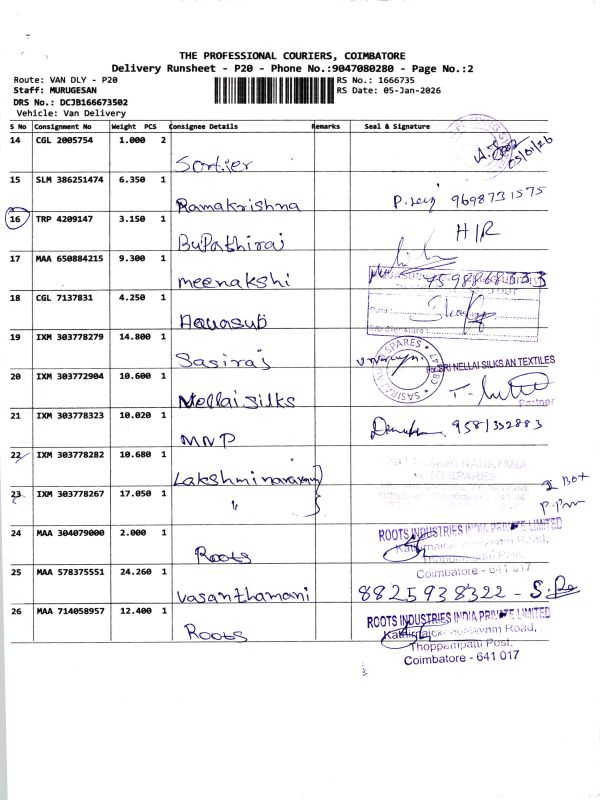 THE PROFESSIONAL COURIERS, COIMBATORE
Delivery Runsheet - P20 - Phone No.:9047080280 - Page No.:2
Route: VAN DLY - P20 RS No.: 1666735
Staff: MURUGESAN RS Date: 05-Jan-2026
DRS No.: DCJB166673502
Vehicle: Van Delivery
S No Consignment No Weight PCS Consignee Details Remarks Seal & Signature
14 CGL 2005754 1.000 2
Sortier 05/01/26
15 SLM 386251474 6.350 1
Ramakrishna 9698731575
16 TRP 4209147 3.150 1
Bupathiraj H/R
17 MAA 650884215 9.300 1
meenakshi
18 CGL 7137831 4.250 1
Aquasub
19 IXM 303778279 14.800 1
Sasiraj
SRI NELLAI SILKS AN TEXTILES
20 IXM 303772904 10.600 1
Nellai Silks
Partner
21 IXM 303778323 10.020 1
MNP 9581332883
22 IXM 303778282 10.680 1
Lakshmi narayana
23 IXM 303778267 17.050 1
"
24 MAA 304079000 2.000 1
Roots
ROOTS INDUSTRIES INDIA PRIVATE LIMITED
Thoppampatti Post,
Coimbatore - 641 017
25 MAA 578375551 24.260 1
vasanthamani 8825938322 -
26 MAA 714058957 12.400 1
Roots
ROOTS INDUSTRIES INDIA PRIVATE LIMITED
Road,
Thoppampatti Post,
Coimbatore - 641 017